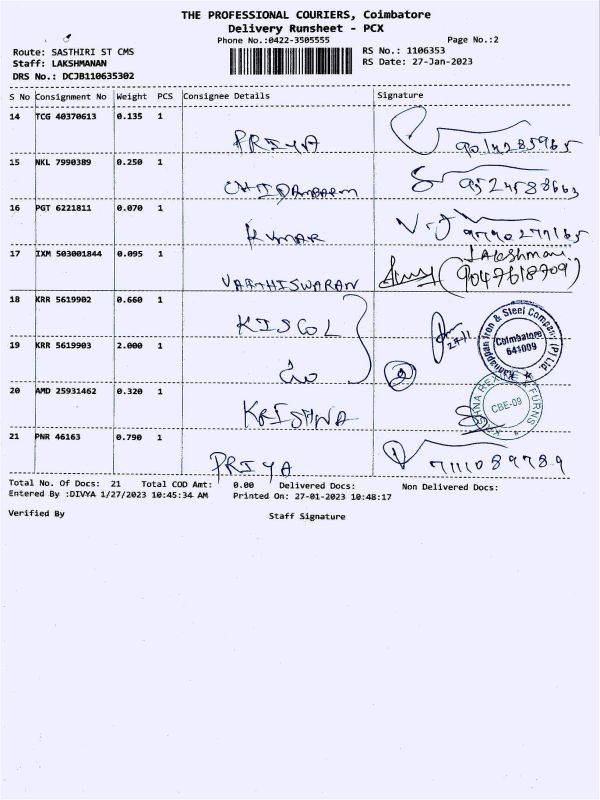 THE PROFESSIONAL COURIERS, Coimbatore
Delivery Runsheet - PCX
Phone No.:0422-3505555 Page No.:2
Route: SASTHIRI ST CMS RS No.: 1106353
Staff: LAKSHMANAN RS Date: 27-Jan-2023
DRS No.: DCJB110635302
S No Consignment No Weight PCS Consignee Details Signature
14 TCG 40370613 0.135 1
PRIYA
15 NKL 7990389 0.250 1
CHIDAMBARM
16 PGT 6221811 0.070 1
KUMAR
17 IXM 503001844 0.095 1 Lakshman
VARTHISWARAN (9047618709)
18 KRR 5619902 0.660 1
KISCOL
Kannappan Iron & Steel Company (P) Ltd.
Coimbatore
641009
19 KRR 5619903 2.000 1
2
20 AMD 25931462 0.320 1
KRISHNA
CBE-09
21 PNR 46163 0.790 1
PRIYA 7111089789
Total No. Of Docs: 21 Total COD Amt: 0.00 Delivered Docs: Non Delivered Docs:
Entered By :DIVYA 1/27/2023 10:45:34 AM Printed On: 27-01-2023 10:48:17
Verified By Staff Signature